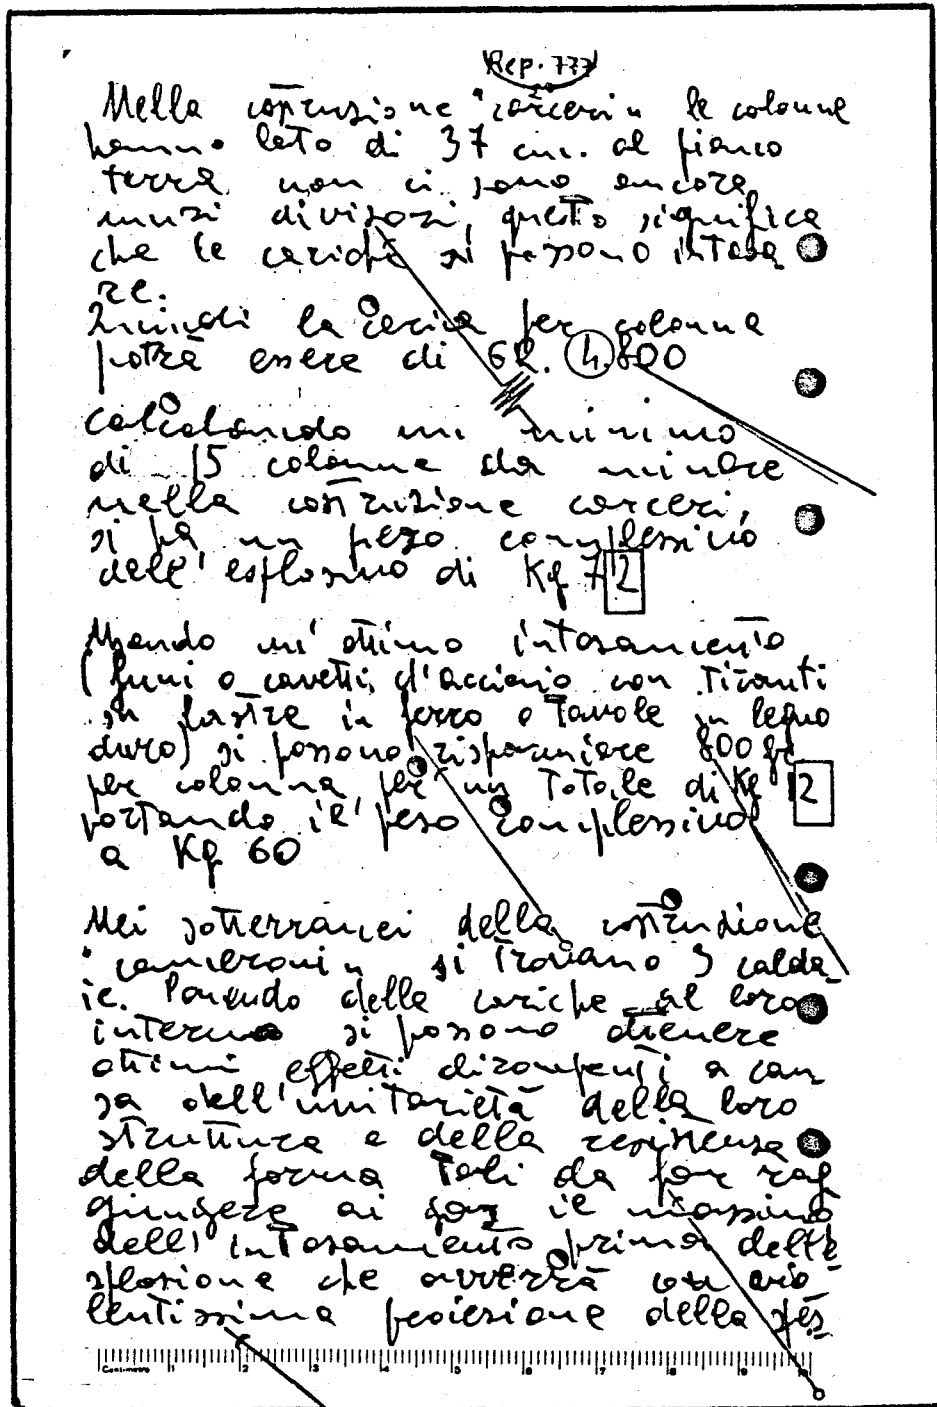 Rep. 777
Nella costruzione "carceri" le colonne
hanno lato di 37 cm. al piano
terra non ci sono ancora
muri divisori, questo significa
che le cariche si possono intasa
re.
Quindi la carica per colonna
potrà essere di 4.800
Calcolando un minimo
di 15 colonne da minare
nella costruzione carceri,
si ha un peso complessivo
dell'esplosivo di Kg 72
Usando un'ottimo intasamento
(funi o cavetti d'acciaio con tiranti
su lastre in ferro o tavole in legno
duro) si possono risparmiare 800 gr
per colonna per un totale di Kg 12
portando il peso complessivo
a Kg 60
Nei sotterranei della costruzione
"cameroni" si trovano 3 calda
ie. Ponendo delle cariche al loro
interno si possono ottenere
ottimi effetti dirompenti a cau
sa dell'unitarietà della loro
struttura e della resistenza
della forma tali da far rag
giungere ai gas il massimo
dell'intasamento prima dell'e
splosione che avverrà con vio
lentissima proiezione della
Centimetro 1 2 3 4 5 6 7 8 9 10